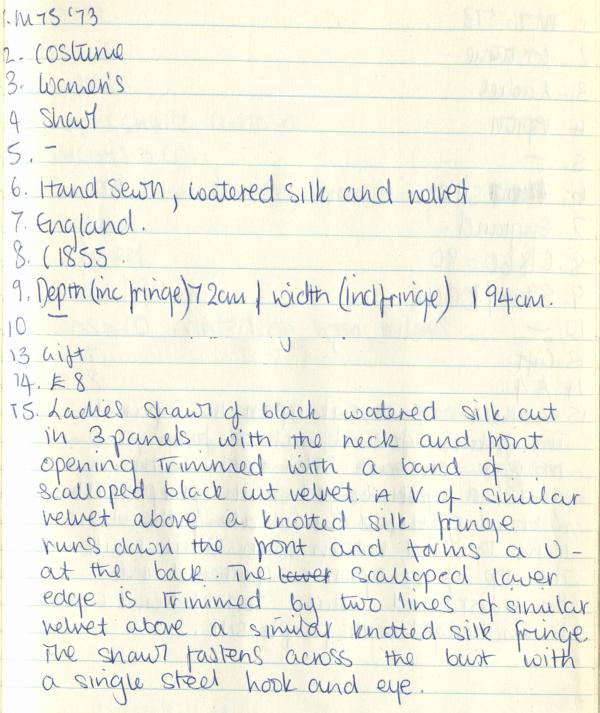 1. M75 '73
2. Costume
3. Women's
4 Shawl
5. -
6. Hand Sewn, watered silk and velvet
7. England.
8. C1855
9. Depth (inc fringe) 72cm / width (incl fringe) 194cm.
10
13 Gift
14. E8
15. Ladies shawl of black watered silk cut
in 3 panels with the neck and front
opening trimmed with a band of
scalloped black cut velvet. A V of similar
velvet above a knotted silk fringe
runs down the front and forms a U-
at the back. The lower scalloped lower
edge is trimmed by two lines of similar
velvet above a similar knotted silk fringe
The shawl fastens across the bust with
a single steel hook and eye.